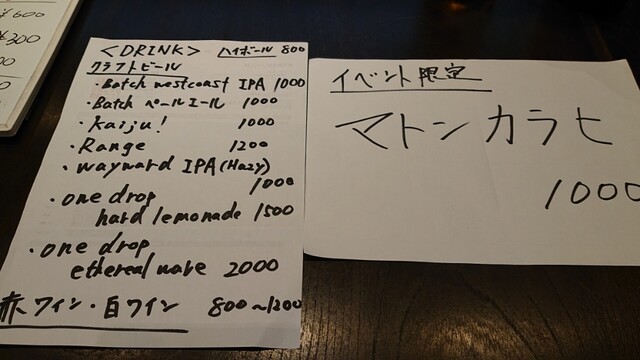 ¥600
¥300
<DRINK> ハイボール 800
クラフトビール
・Batch westcoast IPA 1000
・Batch ペールエール 1000
・Kaiju! 1000
・Range 1200
・wayward IPA (Hazy)
1000
・one drop
hard lemonade 1500
・one drop
ethereal wave 2000
赤ワイン・白ワイン 800~1200
イベント限定
マトンカラヒ
1000